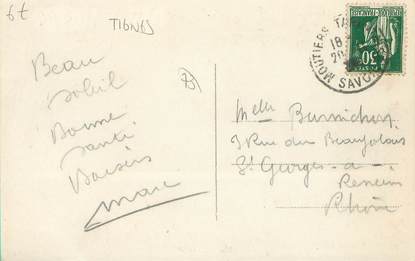 6t
TIGNES
Beau
soleil
Bonne
santé
Baisers
Marc
73
MOUTIERS
18
20
SAVOIE
30
Melle Bernichon
9 Rue du Beaujolais
St Georges-a-
Reneins
Rhône